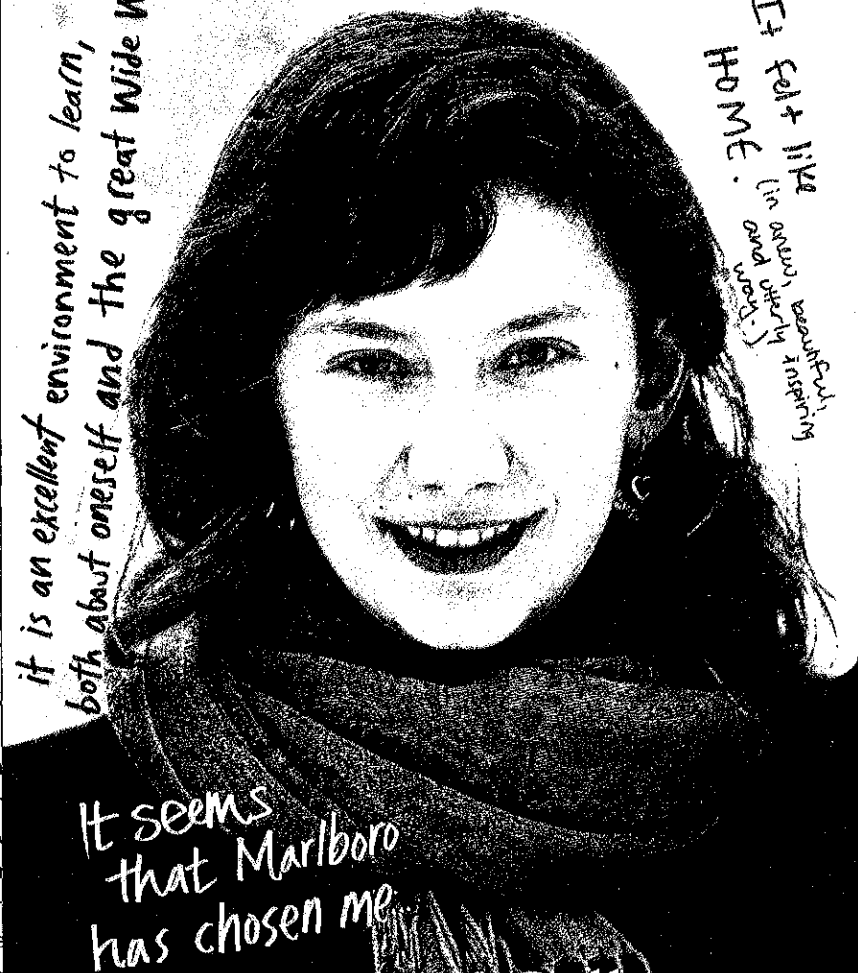 it is an excellent environment to learn,
both about oneself and the great Wide
It felt like
HOME.
(in a new, beautiful,
and utterly inspiring
way.)
It seems
that Marlboro
has chosen me